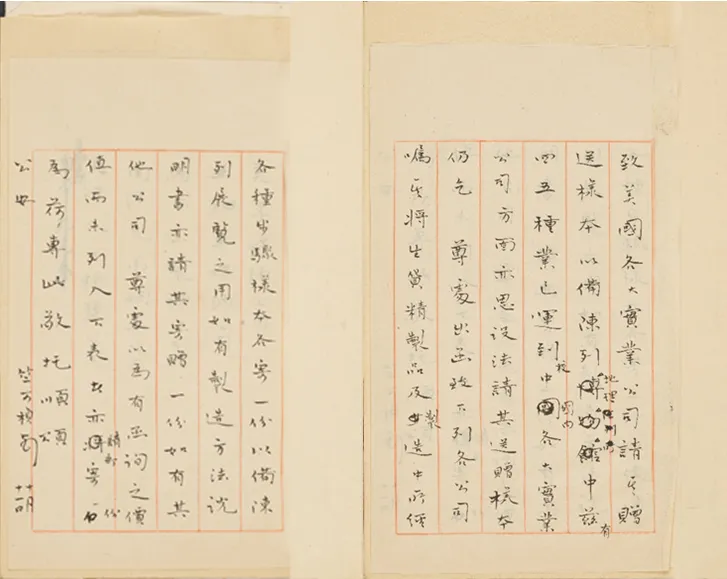 致美國各大實業公司請其贈
送樣本以備陳列地理陳列所中茲有
四五種業已運到校中國內各大實業
公司方面亦思設法請其送贈樣本
仍乞 尊處出函致下列各公司
囑其將生貨精製品及製造中所經
各種步驟樣本各寄一份以備陳
列展覽之用如有製造方法說
明書亦請其寄贈一份如有其
他公司 尊處以為有函詢之價
值而未列入下表者亦請寄一份
為荷專此敬托順頌
公安 竺可楨